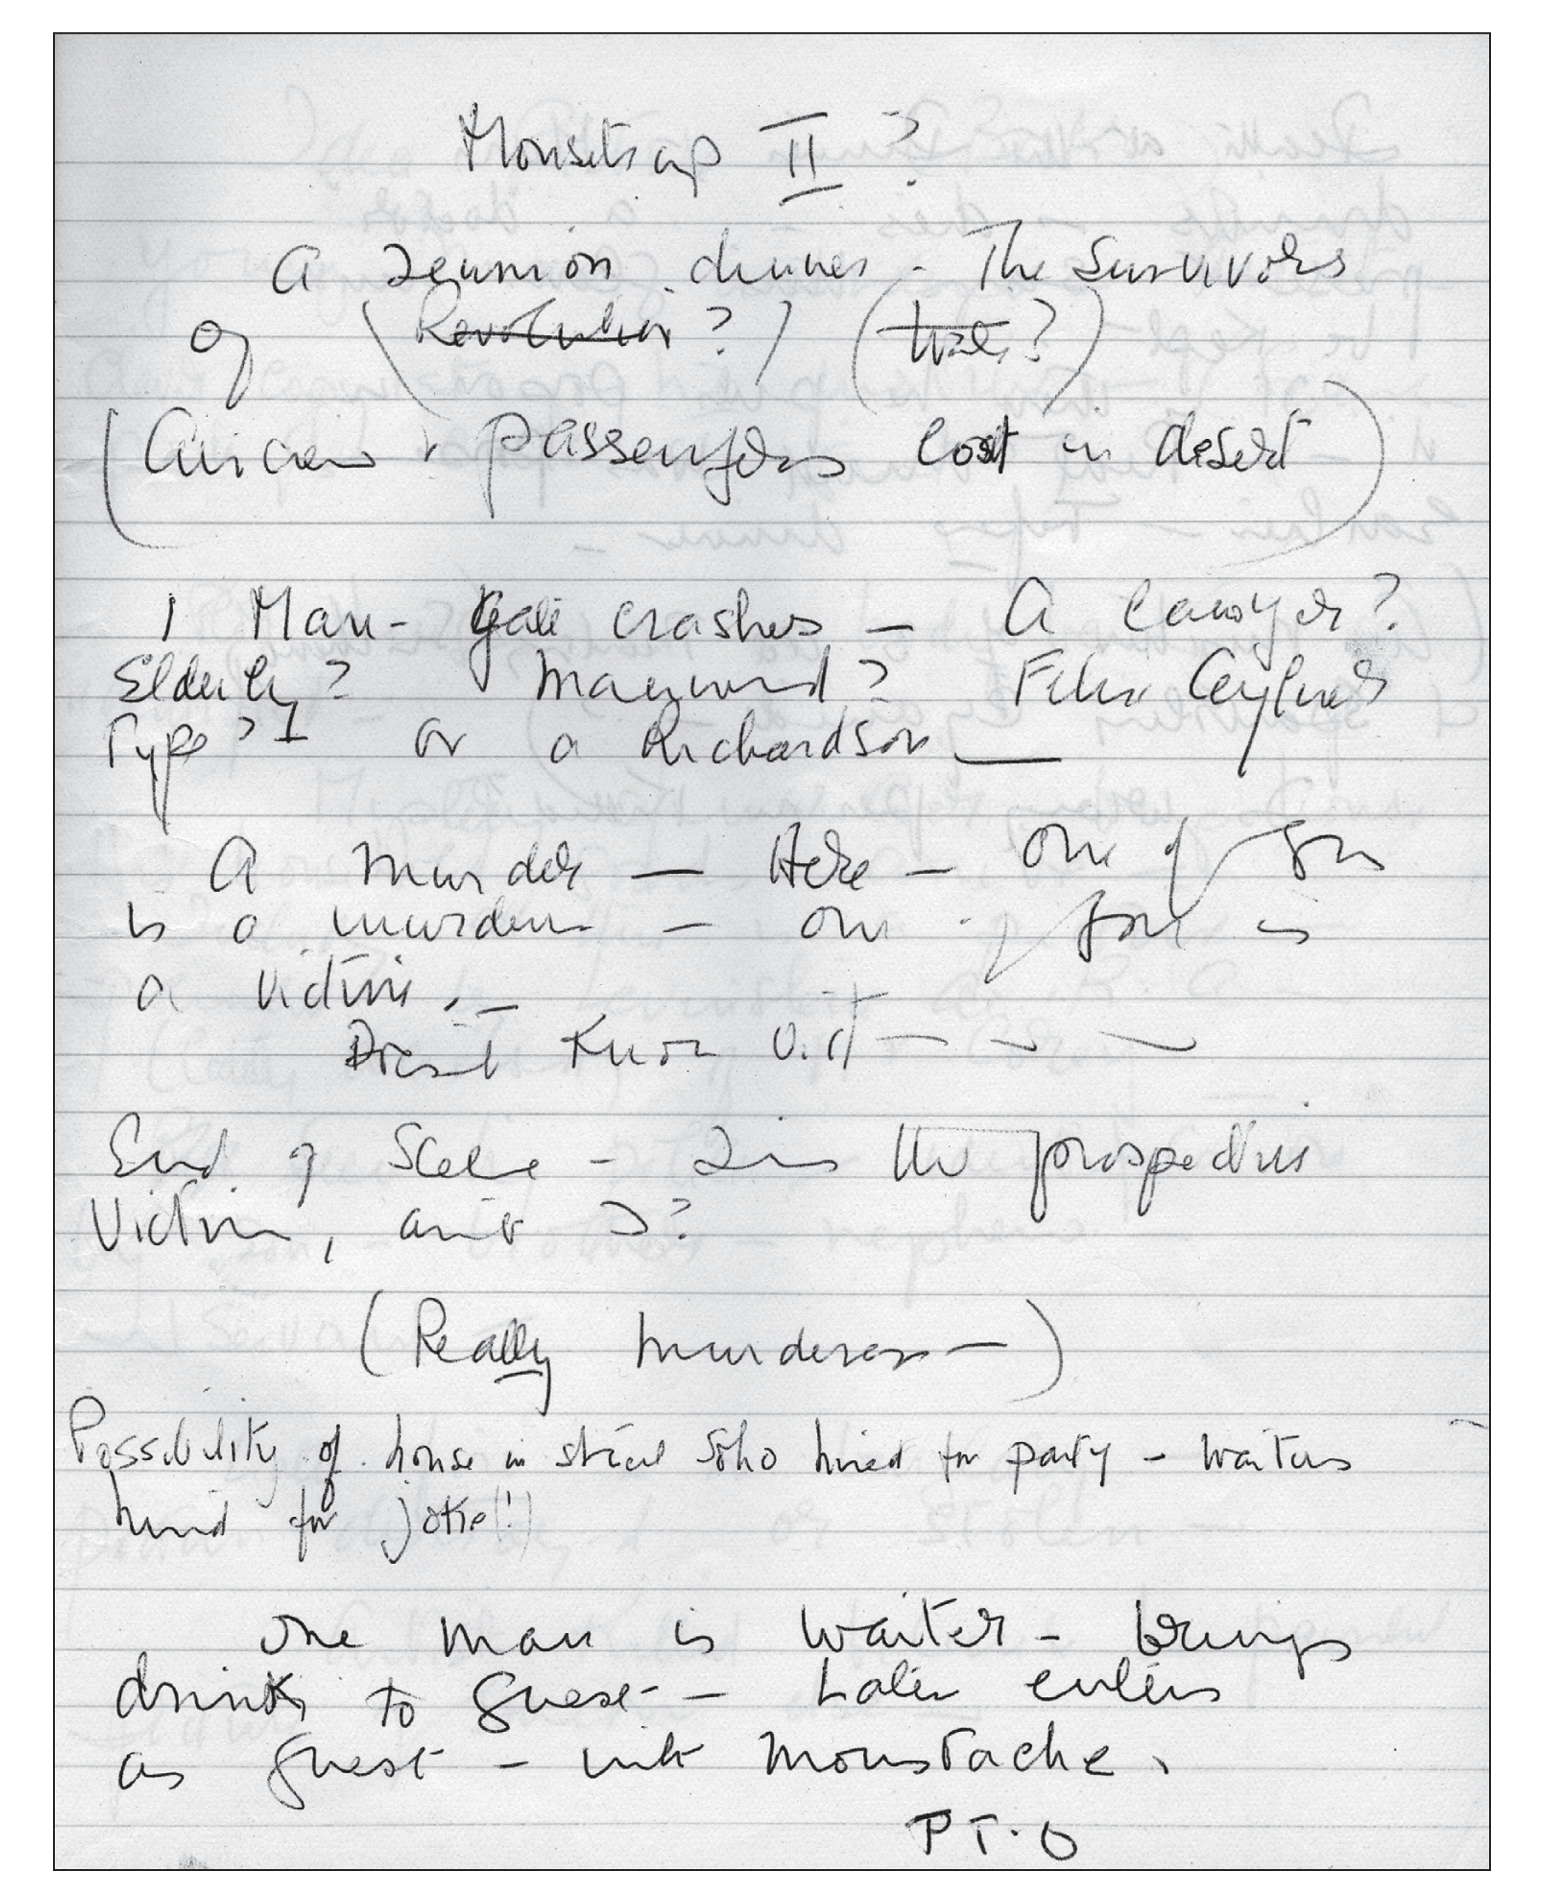 Mousetrap II ?
A reunion dinner - The Survivors
of (Revolution?) (War?)
(Aircrew & passengers lost in desert)
1 Man - Gate crashes — A lawyer?
Elderly? Felix Aylmer
Type? or a Richardson —
A murder — Here — One of you
is a murderer — one of you is
a victim. —
Doesn't know
End of Scene - is the prospective
Victim,
(Really murderer —)
Possibility of house in street Soho hired for party - waiters
hired for joke(!)
One man is waiter - brings
drinks to guest - Later enters
as guest - with moustache.
P.T.O